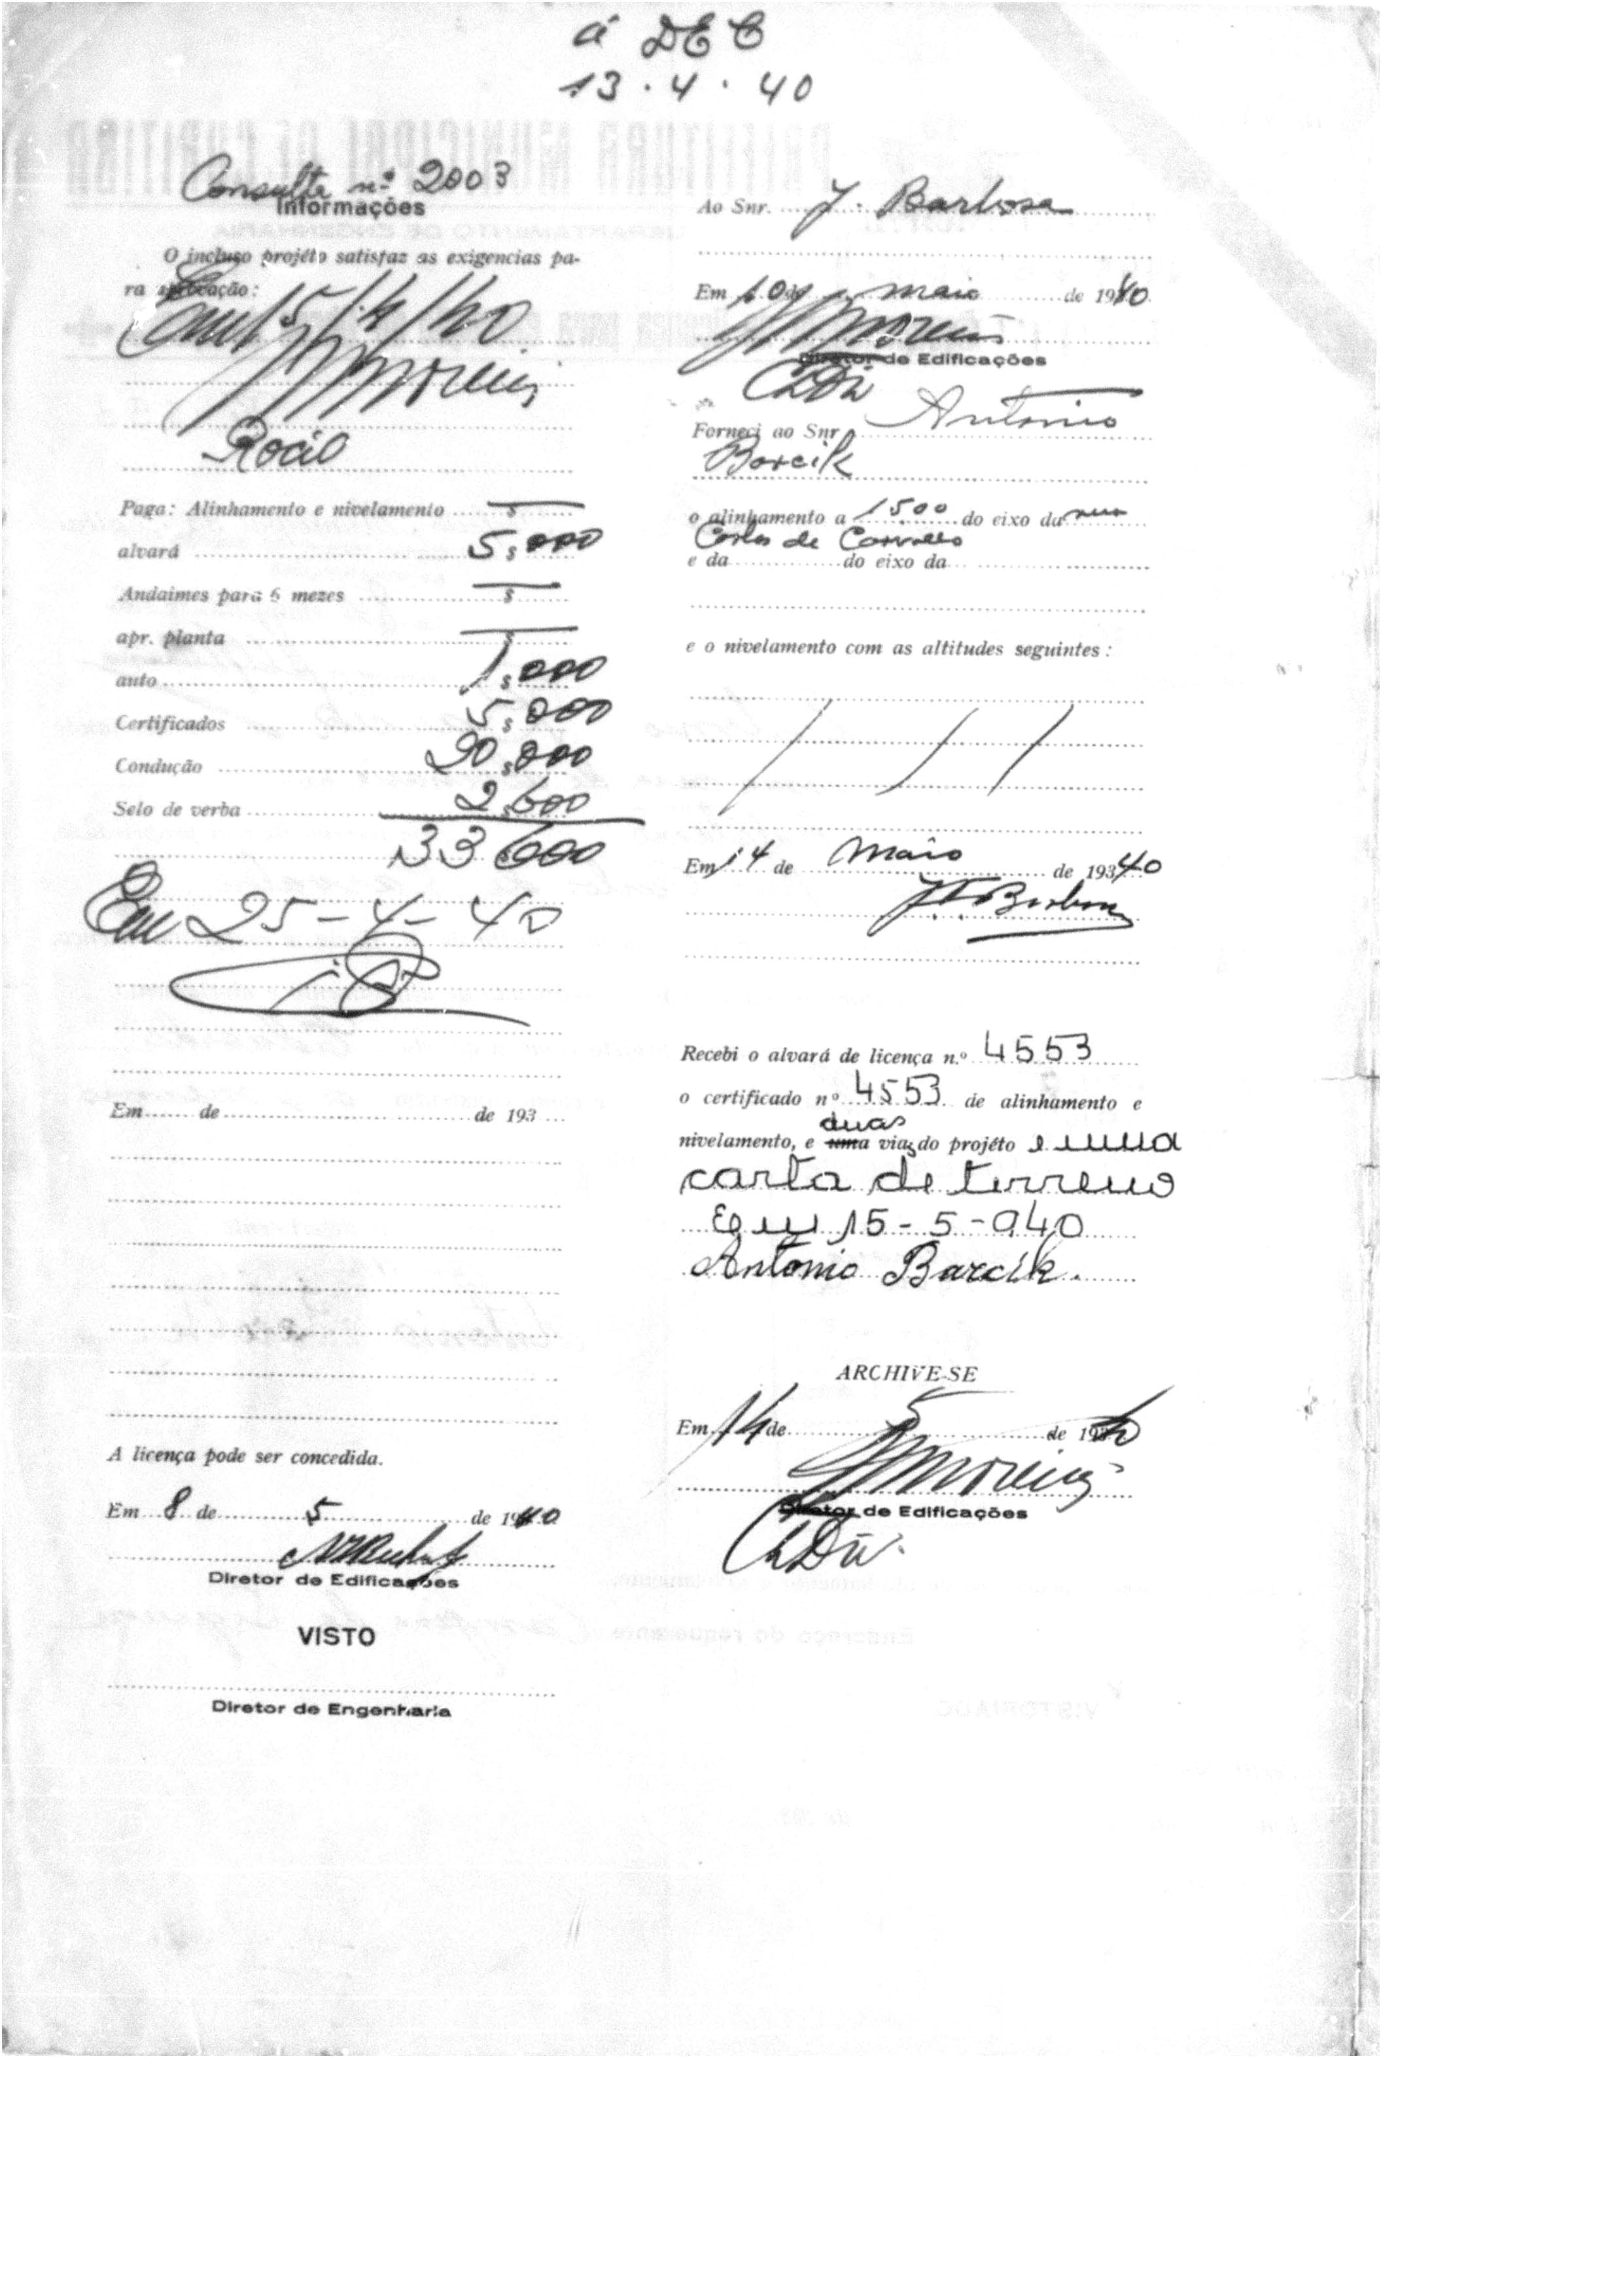 á DEC
13.4.40
Consulta nº 2003
Informações
O incluso projéto satisfaz as exigencias pa-
ra aprovação:
Em 15/4/40
Moreira
Rocio
Paga: Alinhamento e nivelamento $
alvará 5$000
Andaimes para 6 mezes $
apr. planta $
auto 1$000
Certificados 5$000
Condução 20$000
Selo de verba 2$600
33600
Em 25-4-40
Em de de 193
A licença pode ser concedida.
Em 8 de 5 de 1940
Diretor de Edificações
VISTO
Diretor de Engenharia
Ao Snr. J. Barbosa
Em 10 de maio de 1940
Moreira
Diretor de Edificações
Forneci ao Snr. Antonio
Barcik
o alinhamento a 1500 do eixo da rua
Carlos de Carvalho
e da do eixo da
e o nivelamento com as altitudes seguintes:
Em 14 de Maio de 19340
Barbosa
Recebi o alvará de licença n.º 4553
o certificado nº 4553 de alinhamento e
duas
nivelamento, e uma vias do projéto e uma
carta de terreno
Em 15-5-940
Antonio Barcik.
ARCHIVE-SE
Em 14 de 5 de 1940
Moreira
Diretor de Edificações